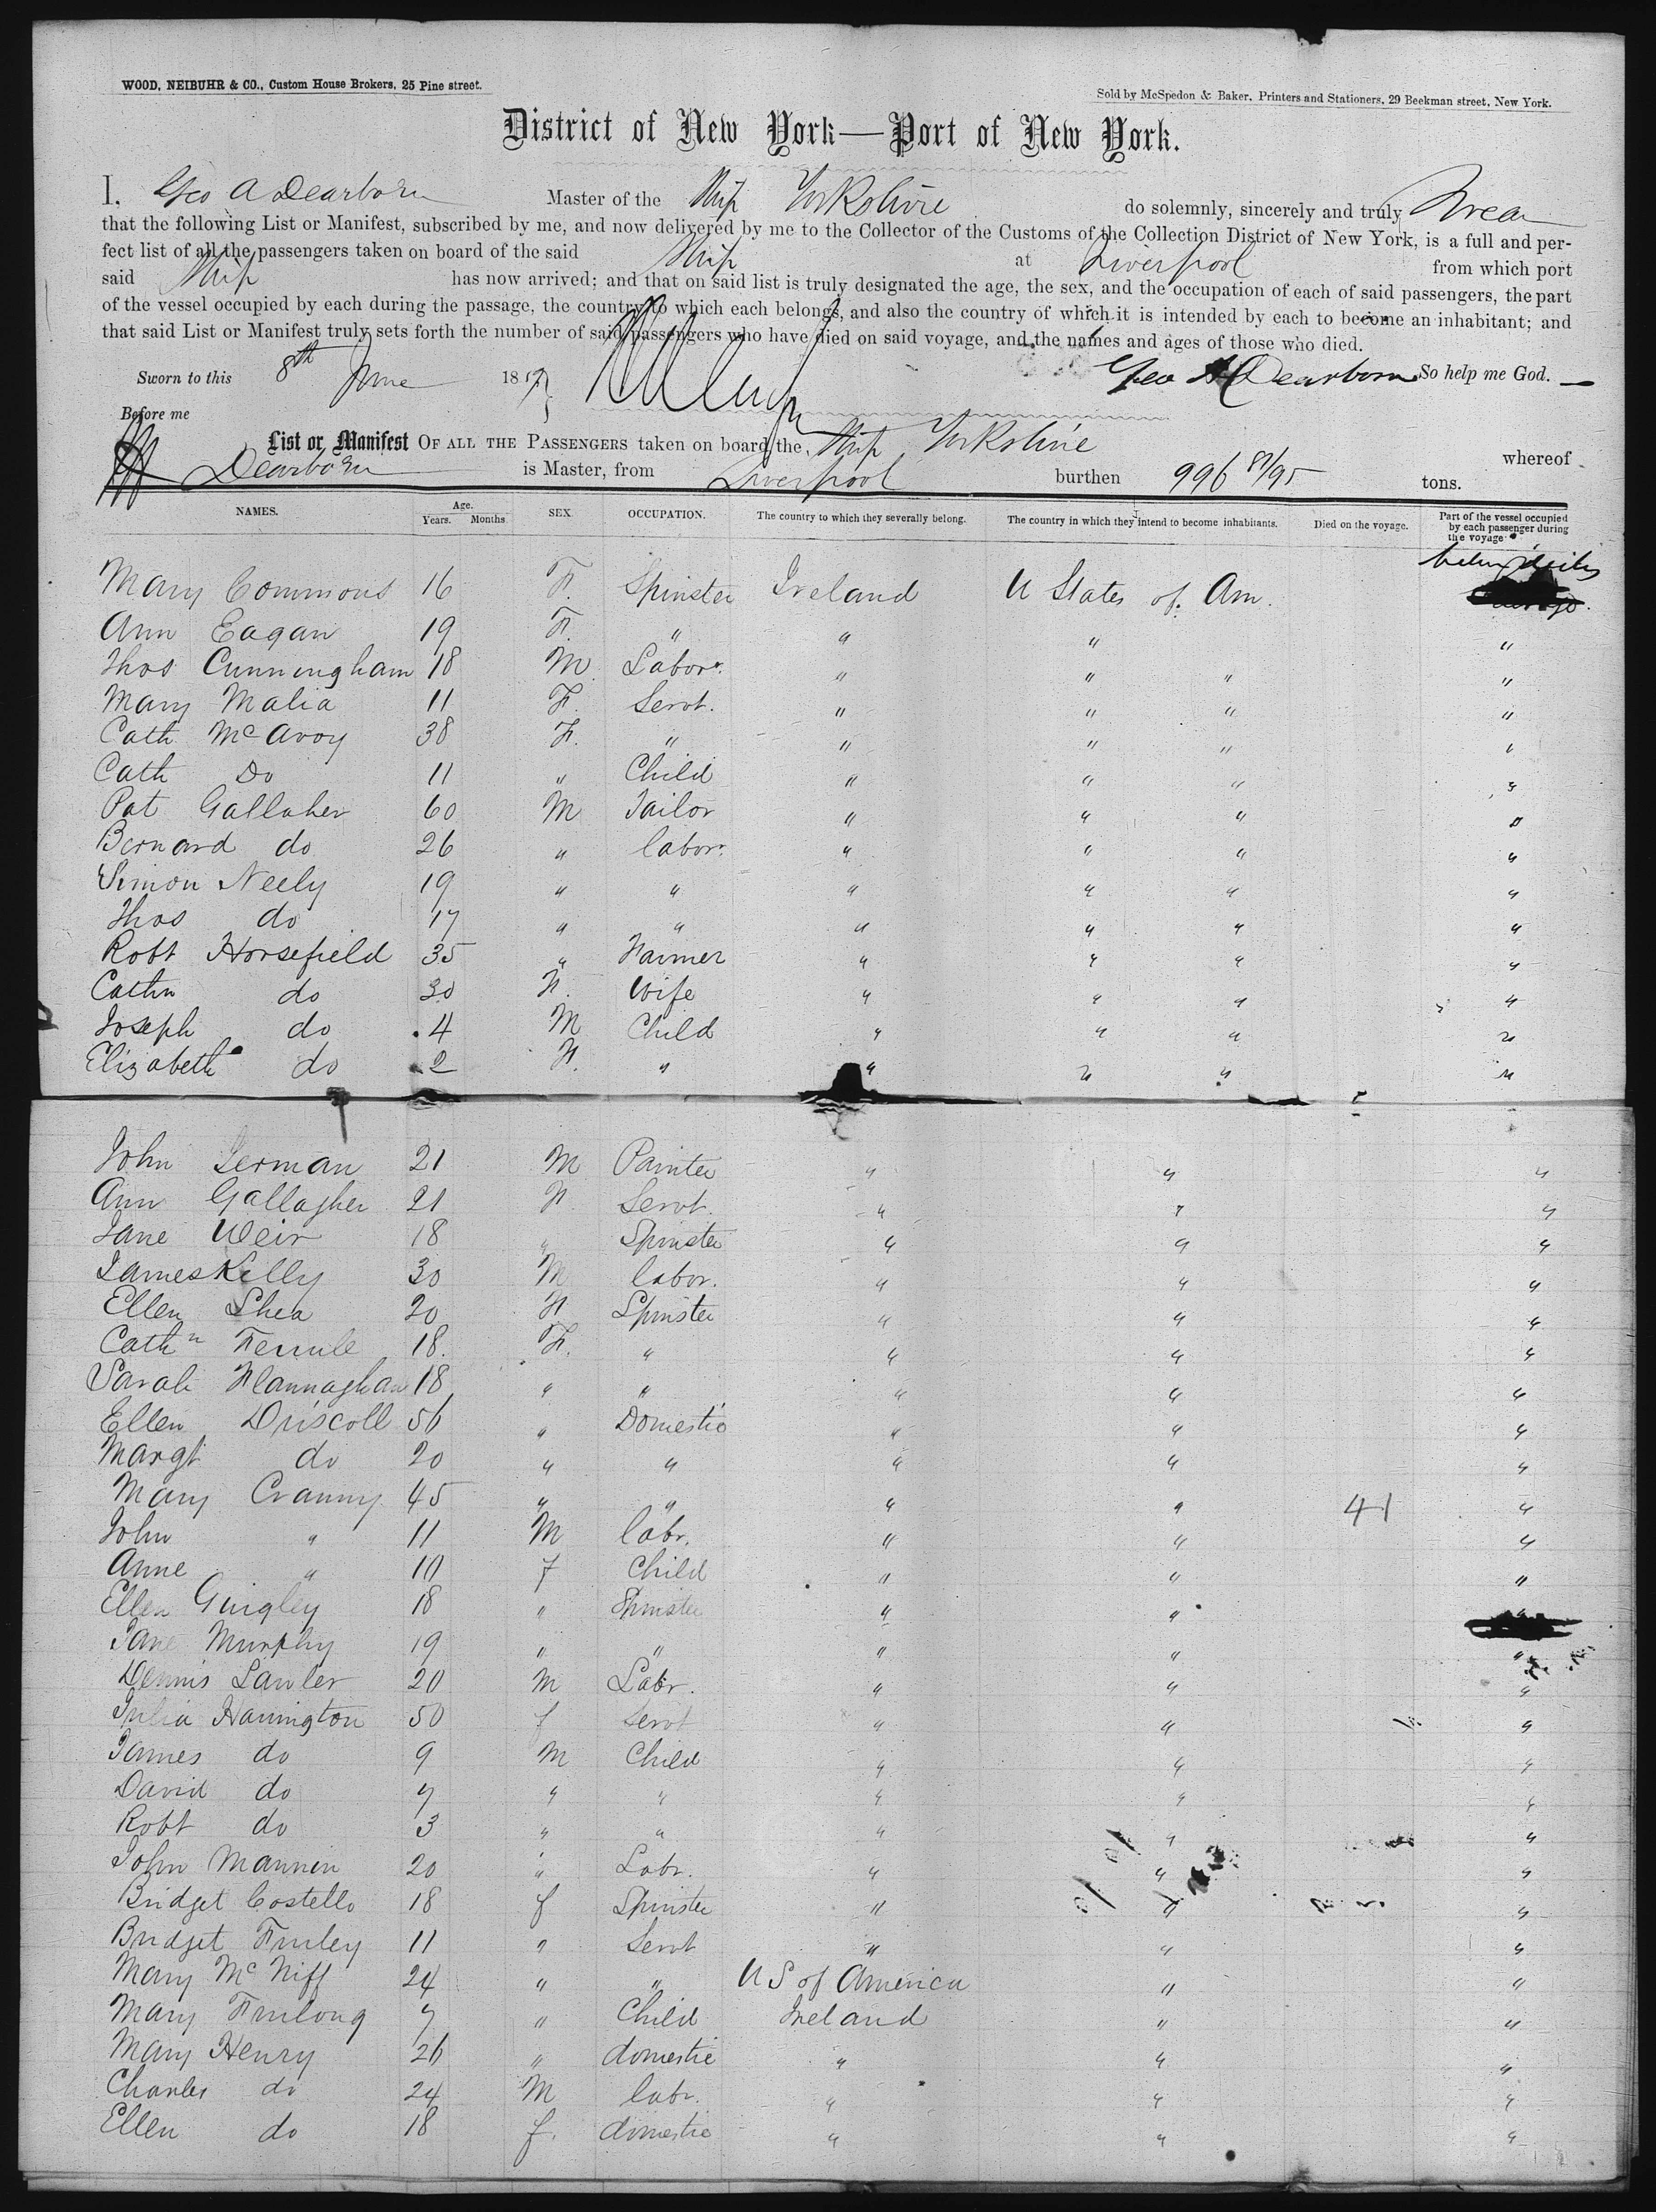 WOOD, NEIBUHR & CO., Custom House Brokers, 25 Pine street.
Sold by McSpedon & Baker, Printers and Stationers, 29 Beekman street, New York.
District of New York—Port of New York.
I, Geo A Dearborn Master of the Ship Yorkshire do solemnly, sincerely and truly Swear
that the following List or Manifest, subscribed by me, and now delivered by me to the Collector of the Customs of the Collection District of New York, is a full and per-
fect list of all the passengers taken on board of the said Ship at Liverpool from which port
said Ship has now arrived; and that on said list is truly designated the age, the sex, and the occupation of each of said passengers, the part
of the vessel occupied by each during the passage, the country to which each belongs, and also the country of which it is intended by each to become an inhabitant; and
that said List or Manifest truly sets forth the number of said passengers who have died on said voyage, and the names and ages of those who died.
Sworn to this 8th June 185 Geo A Dearborn So help me God.
Before me
List or Manifest OF ALL THE PASSENGERS taken on board the Ship Yorkshire whereof
Dearborn is Master, from Liverpool burthen 996 81/95 tons.
NAMES. Age. Years. Months SEX. OCCUPATION. The country to which they severally belong. The country in which they intend to become inhabitants. Died on the voyage. Part of the vessel occupied by each passenger during the voyage
Mary Commons 16 F. Spinster Ireland U States of Am.
Ann Eagan 19 F. " " " "
Thos Cunningham 18 M. Labor. " " " "
Mary Malia 11 F. Servt. " " " "
Cath McAvoy 38 F. " " " " "
Cath Do 11 " Child " " " "
Pat Gallaher 60 M Tailor " " " "
Bernard do 26 " labor. " " " "
Simon Neely 19 " " " " " "
Thos do 17 " " " " " "
Robt Horsefield 35 " Farmer " " " "
Cathn do 30 F. Wife " " " "
Joseph do 4 M Child " " " "
Elizabeth do 2 F. " " " " "
John Lerman 21 M Painter " " "
Ann Gallagher 21 F Servt. " " "
Jane Weir 18 " Spinster " " "
James Kelly 30 M labor. " " "
Ellen Shea 20 F Spinster " " "
Cathn 18. F. " " " "
Sarah Flannaghan 18 " " " " "
Ellen Driscoll 56 " Domestic " " "
Margt do 20 " " " " "
Mary Cranny 45 " " " " 41 "
John " 11 M labr. " " "
Anne " 10 f Child " " "
Ellen Guigley 18 " Spinster " " "
Jane Murphy 19 " " " " "
Dennis Lawler 20 M Labr. " " "
Julia Harrington 50 f Servt " " "
James do 9 M Child " " "
David do 7 " " " " "
Robt do 3 " " " " "
John Mannin 20 " Labr. " " "
Bridget Costello 18 f Spinster " " "
Bridget Finley 11 " Servt " " "
Mary McNiff 24 " " U S of America " "
Mary Furlong 7 " Child Ireland " "
Mary Henry 26 " domestic " " "
Charles do 24 M labr. " " "
Ellen do 18 f. domestic " " "